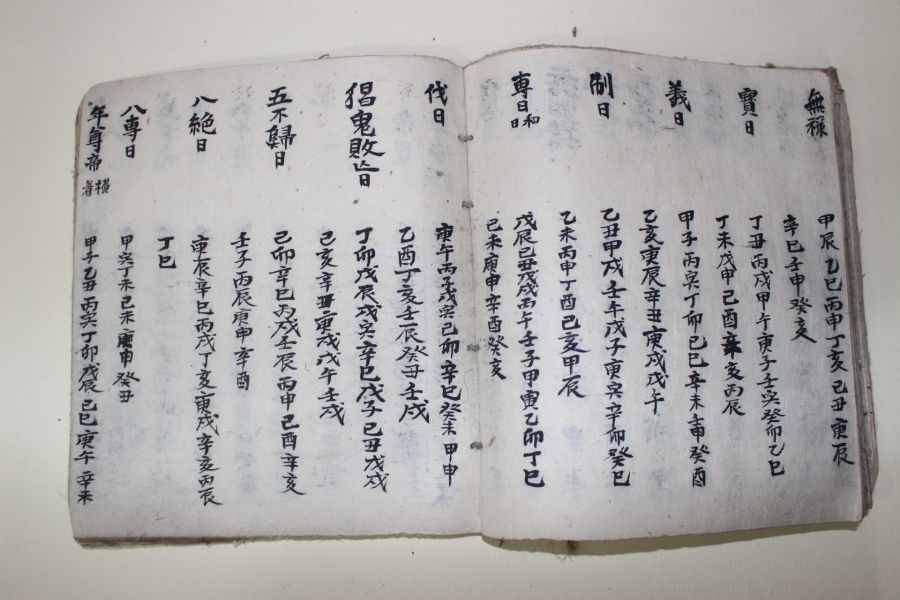 無祿
甲辰乙巳丙申丁亥己丑庚辰
辛巳壬申癸亥
寶日
丁丑丙戌甲午庚子壬寅癸卯乙巳
丁未戊申己酉辛亥丙辰
義日
甲子丙寅丁卯己巳辛未壬申癸酉
乙亥庚辰辛丑庚戌戊午
制日
乙丑甲戌壬午戊子庚寅辛卯癸巳
乙未丙申丁酉己亥甲辰
專日和日
戊辰己丑戊戌丙午壬子甲寅乙卯丁巳
己未庚申辛酉癸亥
伐日
庚午丙子戊寅己卯辛巳癸未甲申
乙酉丁亥壬辰癸丑壬戌
猖鬼敗亡日
丁卯戊辰戊寅辛巳戊子己丑戊戌
己亥辛丑庚戌戊午壬戌
五不歸日
己卯辛巳丙戌壬辰丙申己酉辛亥
壬子丙辰庚申辛酉
八絕日
庚辰辛巳丙戌丁亥庚戌辛亥丙辰
丁巳
八專日
甲寅丁未己未庚申癸丑
年尊帝橫者
甲子乙丑丙寅丁卯戊辰己巳庚午辛未